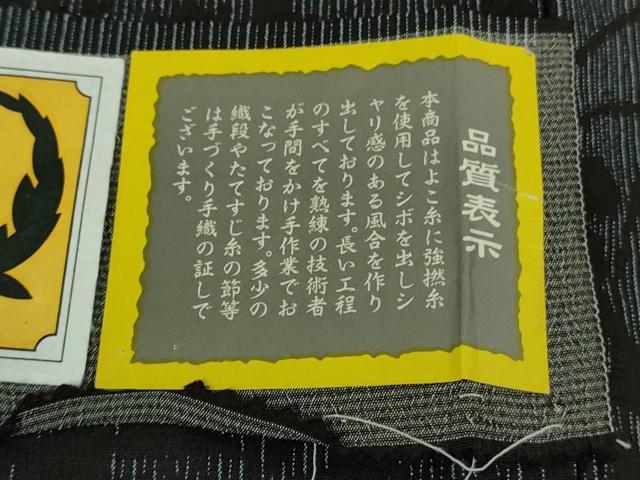 品質表示
本商品はよこ糸に強撚糸
を使用してシボを出しシ
ャリ感のある風合を作り
出しております。長い工程
のすべてを熟練の技術者
が手間をかけ手作業でお
こなっております。多少の
織段やたてすじ糸の節等
は手づくり手織の証しで
ございます。